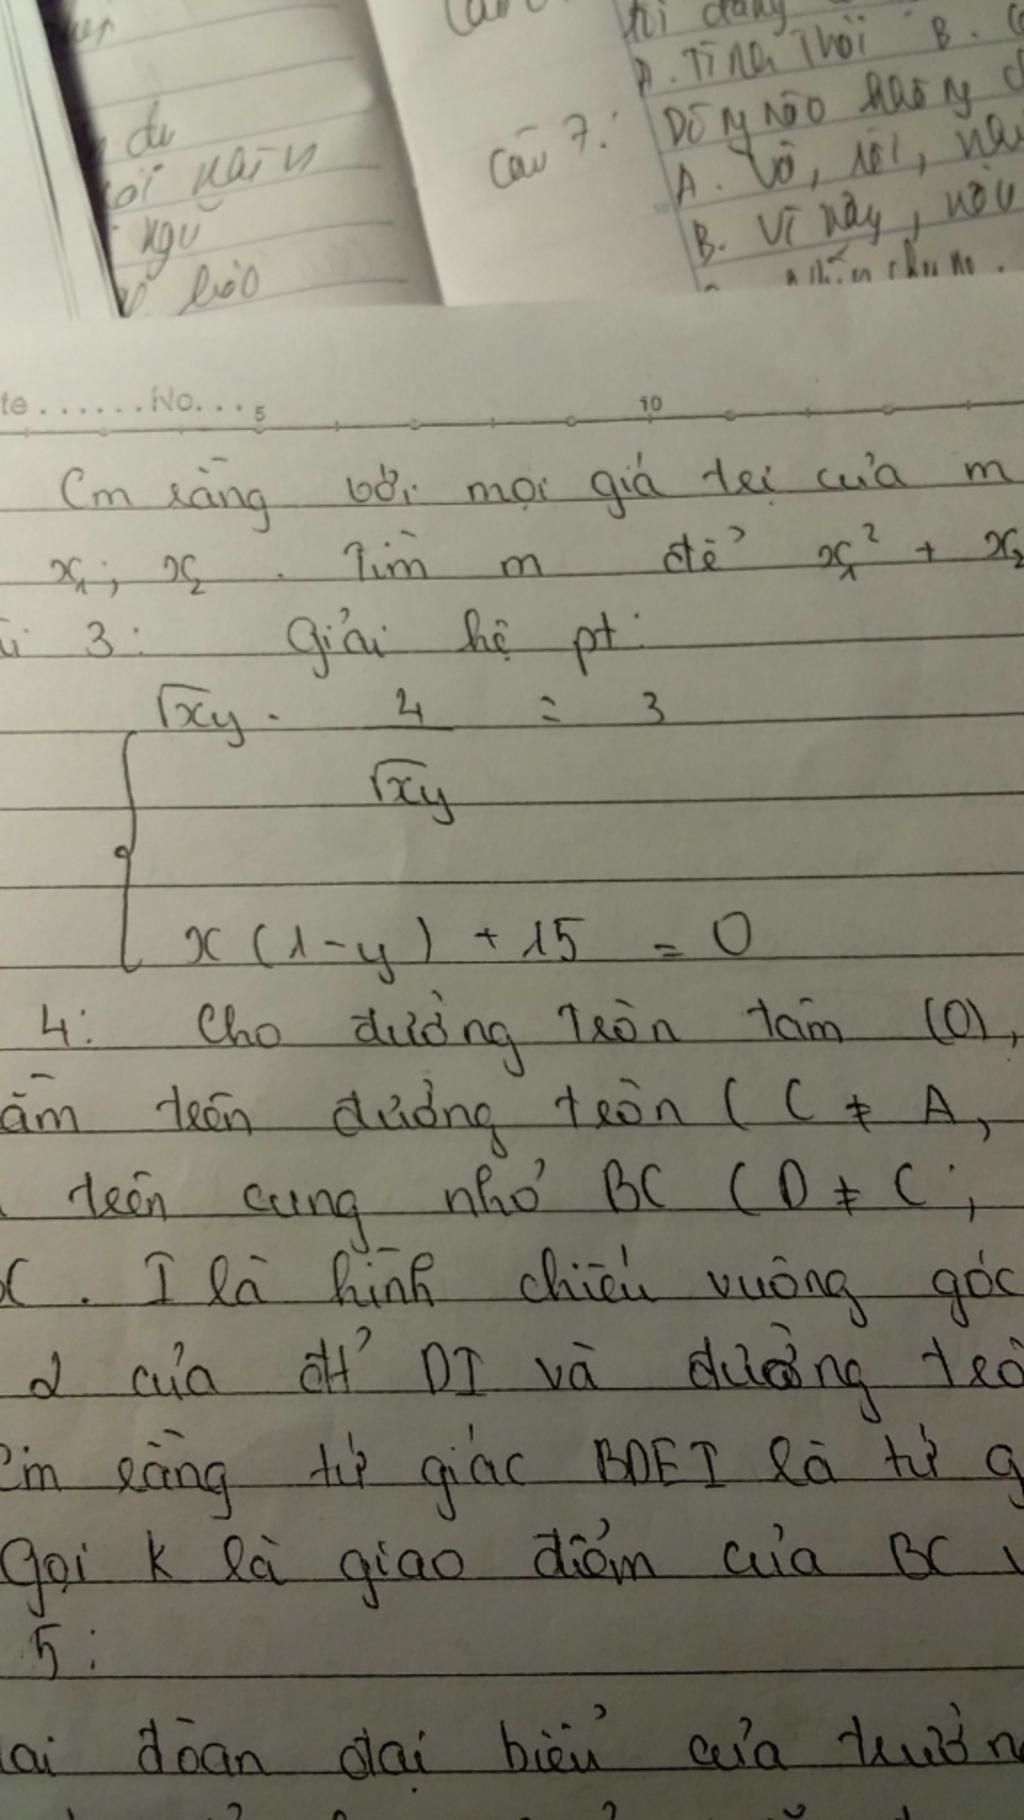 du
ngữ
Câu 7:
A. Tình thái B.
Dòng nào không
A. Vô,
B. Vì vậy,
te.......No... 5 10
Cm rằng với mọi giá trị của m
x₁; x₂. Tìm m để x₁² + x₂
3: Giải hệ pt:
√xy - 4 = 3
√xy
x(1-y) + 15 = 0
4: Cho đường tròn tâm (O),
trên đường tròn (C ≠ A,
trên cung nhỏ BC (D ≠ C;
C. I là hình chiếu vuông góc
2 của đt DI và đường trò
Cm rằng tứ giác BDEI là tứ g
Gọi K là giao điểm của BC
5:
ai đoàn đại biểu của trườn